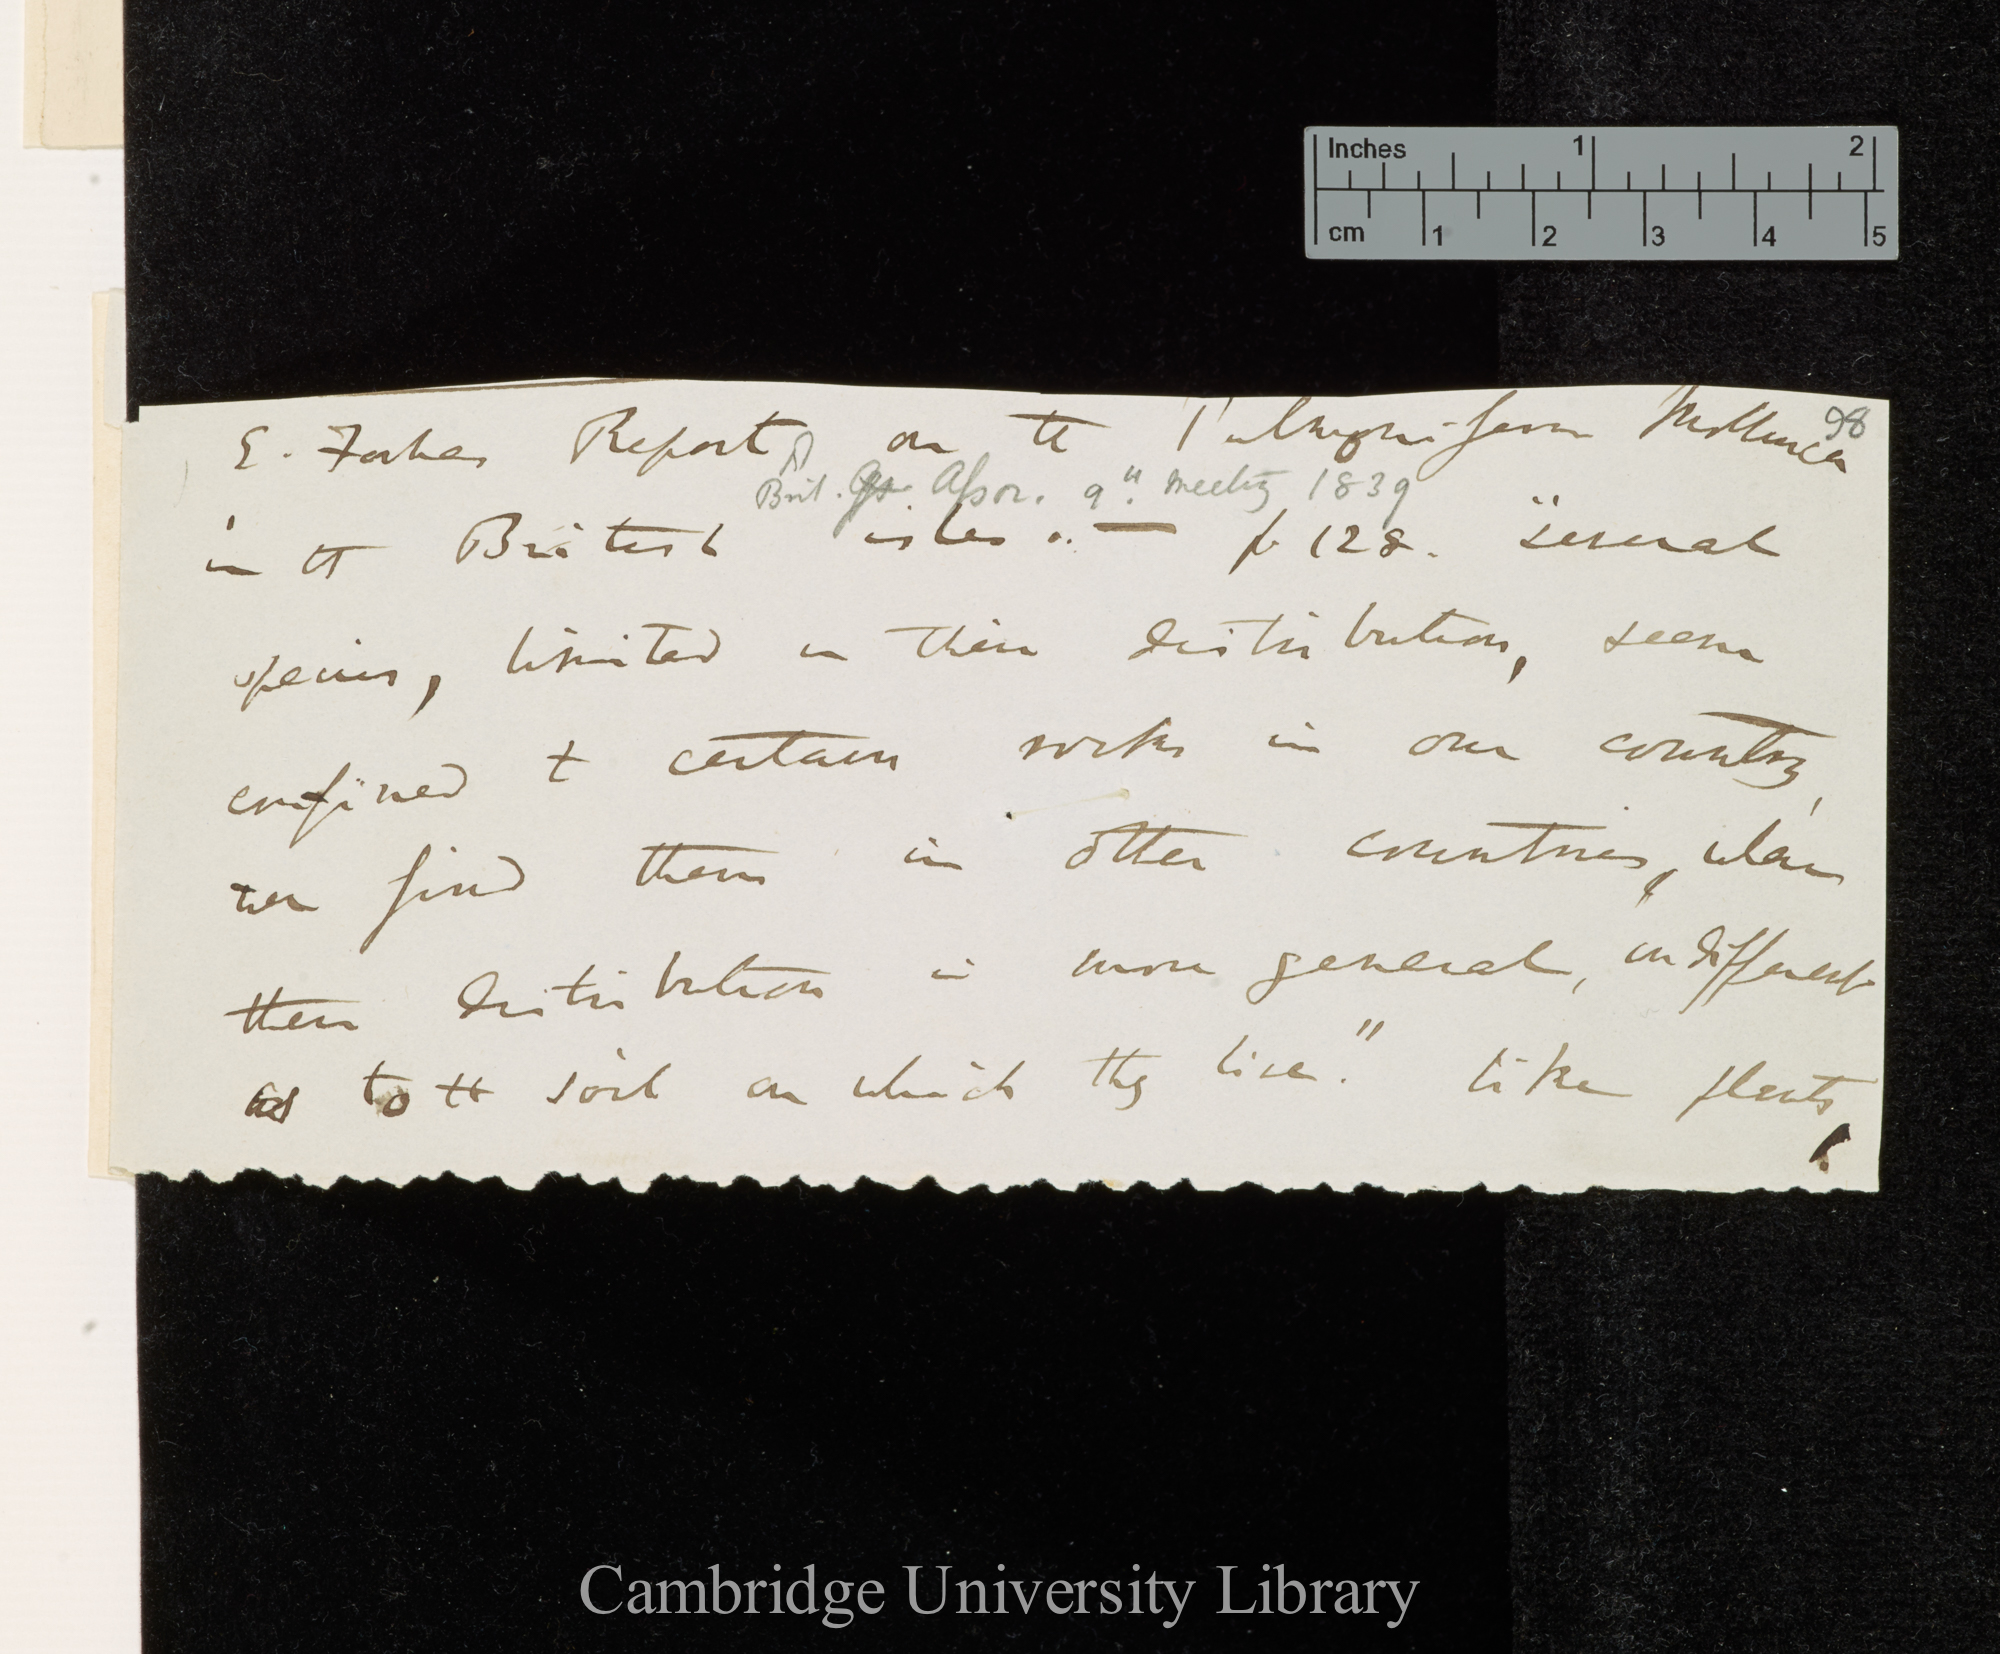 Inches 1 2
cm 1 2 3 4 5
98
E. Forbes Report on the Pulmoniferous Mollusca
Brit. Assoc. 9th. Meeting 1839
in the British isles. — p 128. "several
species, limited in their distribution, seem
confined to certain rocks in our country,
we find them in other countries, where
their distribution is more general, "indifferent
as to the soil on which they live." like plants
!
Cambridge University Library